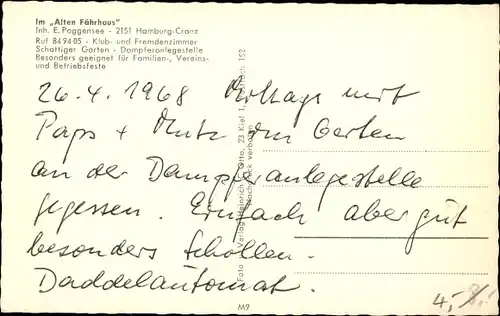 Im „Alten Fährhaus"
Inh. E. Poggensee - 2151 Hamburg-Cranz
Ruf 84 94 05 - Klub- und Fremdenzimmer
Schattiger Garten - Dampferanlegestelle
Besonders geeignet für Familien-, Vereins-
und Betriebsfeste
26.4.1968 Mittags mit
Paps + Mutz im Garten
an der Dampferanlegestelle
gegessen. Einfach aber gut
besonders Schollen.
Daddelautomat.
Foto u. Verlag Heinrich Otto, 23 Kiel 1, 152
Nachdruck verboten
M9
4,-